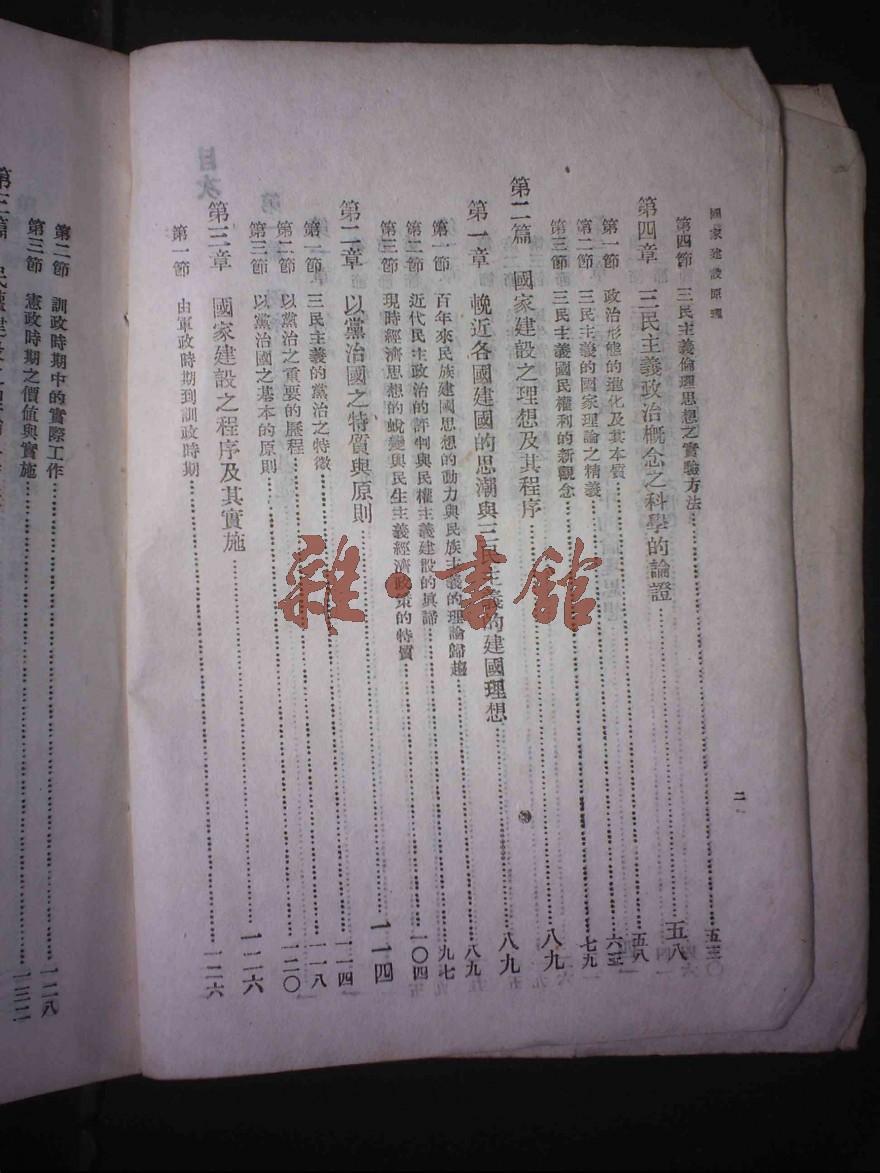 國家建設原理 二
第四節 三民主義倫理思想之實驗方法 五三
第四章 三民主義政治概念之科學的論證 五八
第一節 政治形態的進化及其本質 五八
第二節 三民主義的國家理論之精義 六五
第三節 三民主義國民權利的新觀念 七九
第二篇 國家建設之理想及其程序 八九
第一章 晚近各國建國的思潮與三民主義的建國理想 八九
第一節 百年來民族建國思想的動力與民族主義的理論歸趨 八九
第二節 近代民主政治的評判與民權主義建設的真諦 九七
第三節 現時經濟思想的蛻變與民生主義經濟政策的特質 一〇四
第二章 以黨治國之特質與原則 一一四
第一節 三民主義的黨治之特徵 一一四
第二節 以黨治之重要的歷程 一一八
第三節 以黨治國之基本的原則 一二〇
第三章 國家建設之程序及其實施 一二六
第一節 由軍政時期到訓政時期 一二六
第二節 訓政時期中的實際工作 一二八
第三節 憲政時期之價值與實施 一三二
第三篇
雜·書館